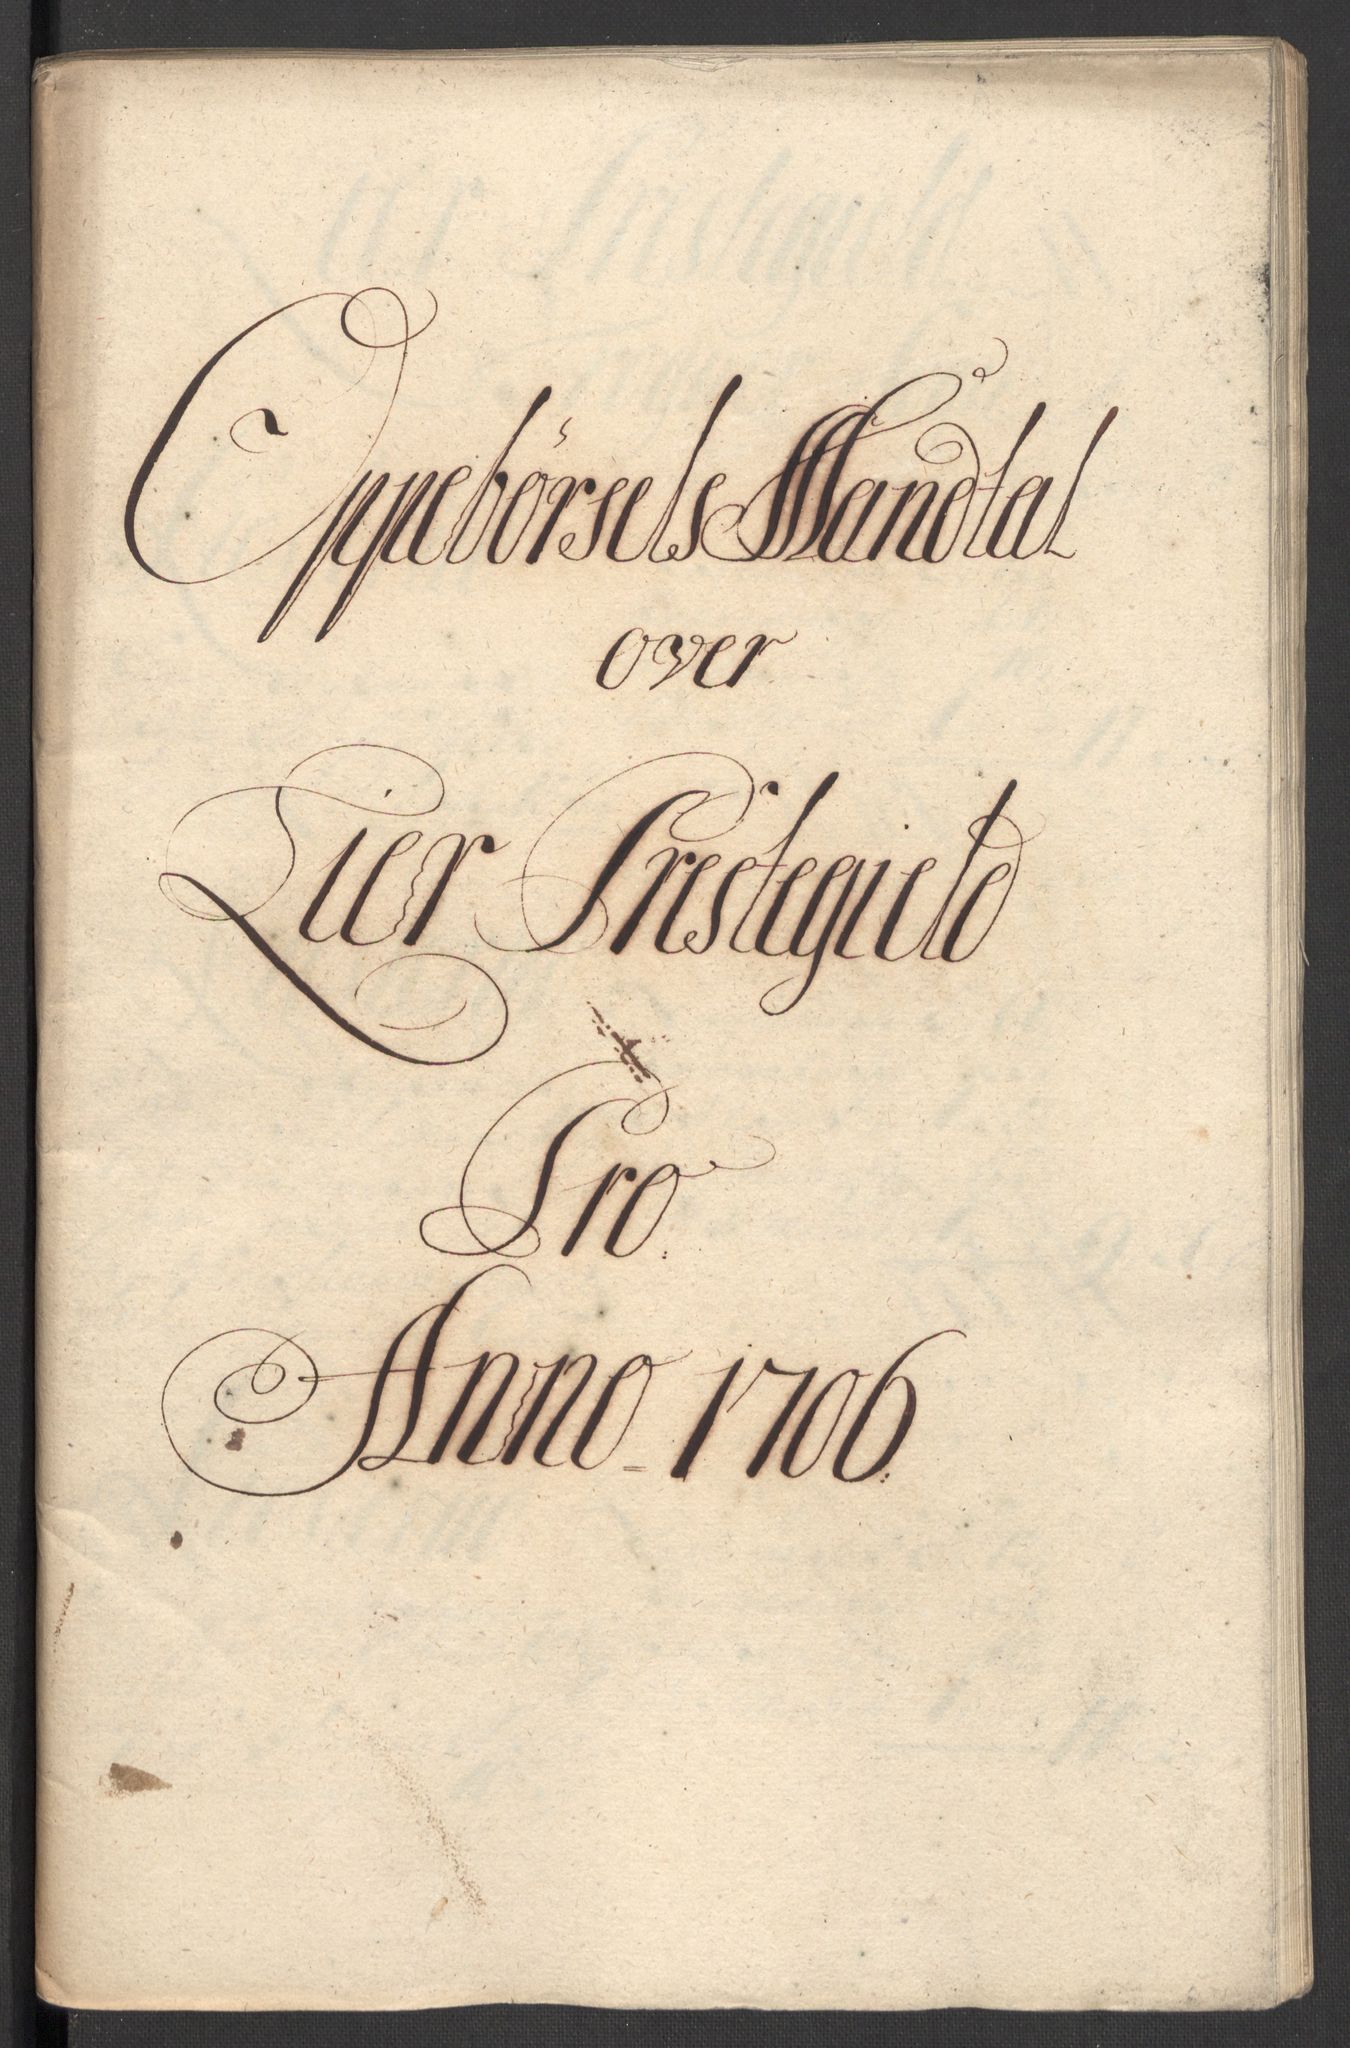 Oppebörsels Mandtal
over
Lier Prestegield
Pro.
Anno 1706.